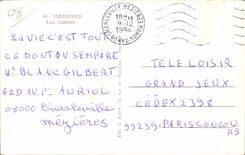 08 - MEZIERES
CHARLEVILLE MEZIERES
18H
9-12
1994
LA VIE C'EST TOUT
CE DONT ON S'EMPARE
MR BLANC GILBERT
62D AV Pt AURIOL
08000 Charleville
Mézières
TELE LOISIR
GRAND JEUX
CEDEX 2398
99239 PARIS CONCOU
RS